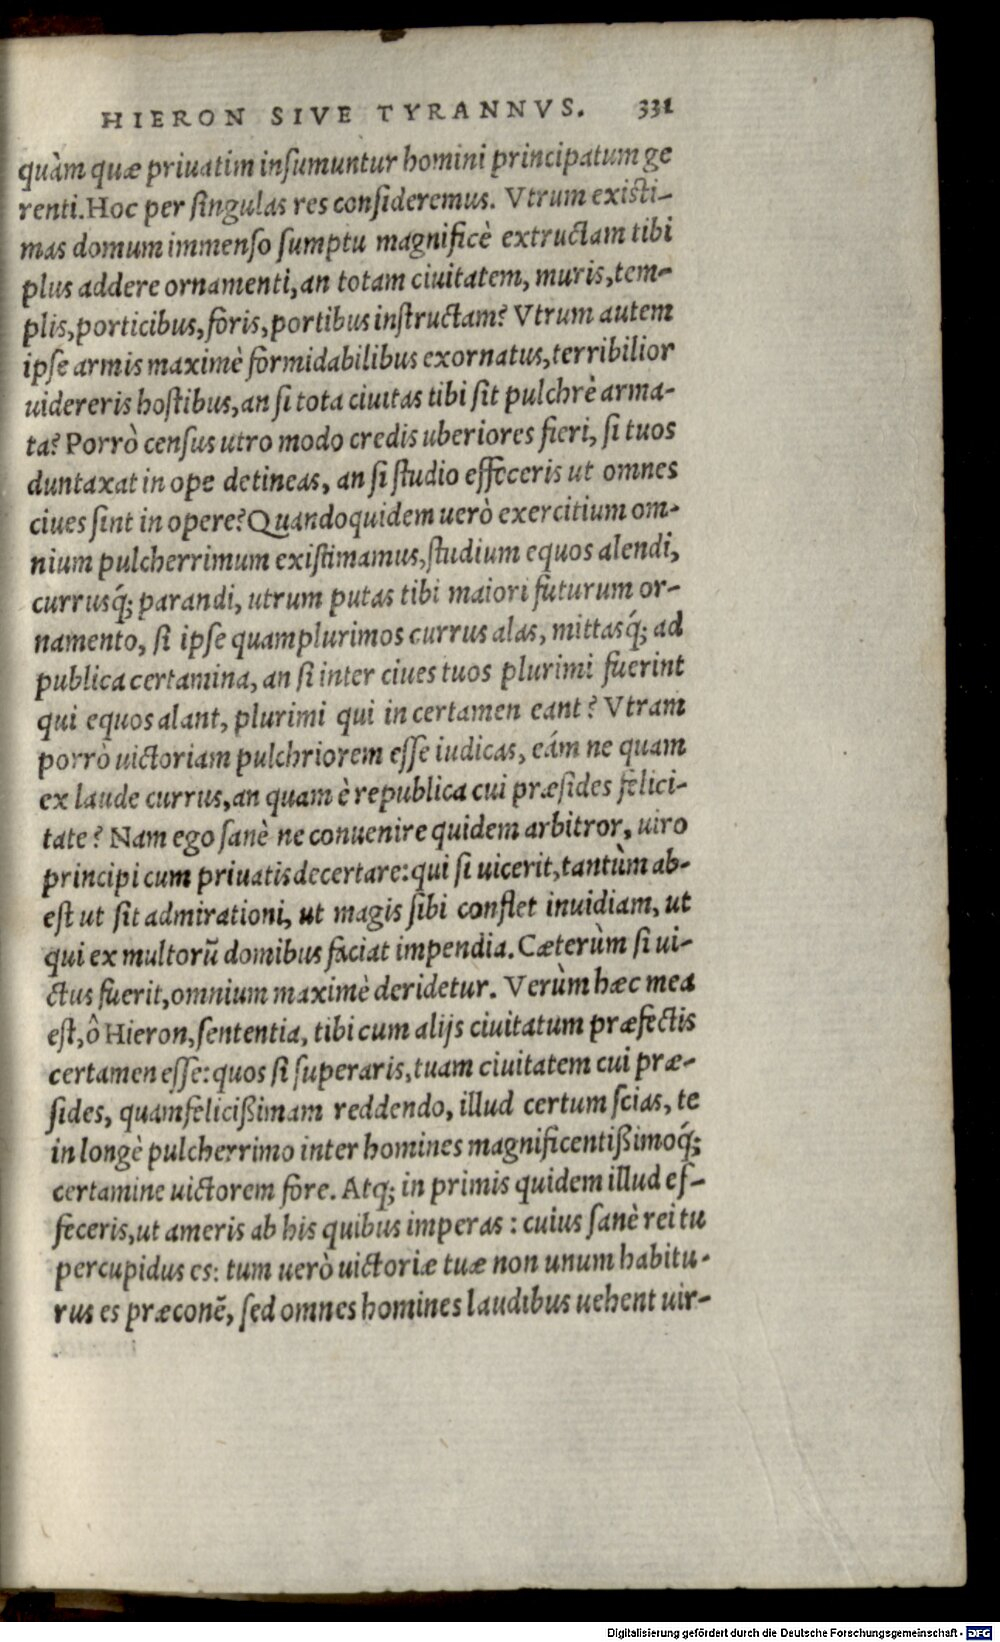 HIERON SIVE TYRANNVS. 331
quàm quæ priuatim insumuntur homini principatum ge
renti. Hoc per singulas res consideremus. Vtrum existi-
mas domum immenso sumptu magnificè extructam tibi
plus addere ornamenti, an totam ciuitatem, muris, tem-
plis, porticibus, foris, portibus instructam? Vtrum autem
ipse armis maximè formidabilibus exornatus, terribilior
uidereris hostibus, an si tota ciuitas tibi sit pulchrè arma-
ta? Porrò census utro modo credis uberiores fieri, si tuos
duntaxat in ope detineas, an si studio effeceris ut omnes
ciues sint in opere? Quandoquidem uerò exercitium om-
nium pulcherrimum existimamus, studium equos alendi,
currusq́; parandi, utrum putas tibi maiori futurum or-
namento, si ipse quamplurimos currus alas, mittasq́; ad
publica certamina, an si inter ciues tuos plurimi fuerint
qui equos alant, plurimi qui in certamen eant? Vtram
porrò uictoriam pulchriorem esse iudicas, eám ne quam
ex laude currus, an quam è republica cui præsides felici-
tate? Nam ego sanè ne conuenire quidem arbitror, uiro
principi cum priuatis decertare: qui si uicerit, tantùm ab-
est ut sit admirationi, ut magis sibi conflet inuidiam, ut
qui ex multorũ domibus faciat impendia. Cæterùm si ui-
ctus fuerit, omnium maximè deridetur. Verùm hæc mea
est, ô Hieron, sententia, tibi cum alijs ciuitatum præfectis
certamen esse: quos si superaris, tuam ciuitatem cui præ-
sides, quamfelicißimam reddendo, illud certum scias, te
in longè pulcherrimo inter homines magnificentißimoq́;
certamine uictorem fore. Atq; in primis quidem illud ef-
feceris, ut ameris ab his quibus imperas: cuius sanè rei tu
percupidus es: tum uerò uictoriæ tuæ non unum habitu-
rus es præconẽ, sed omnes homines laudibus uehent uir-
Digitalisierung gefördert durch die Deutsche Forschungsgemeinschaft - DFG